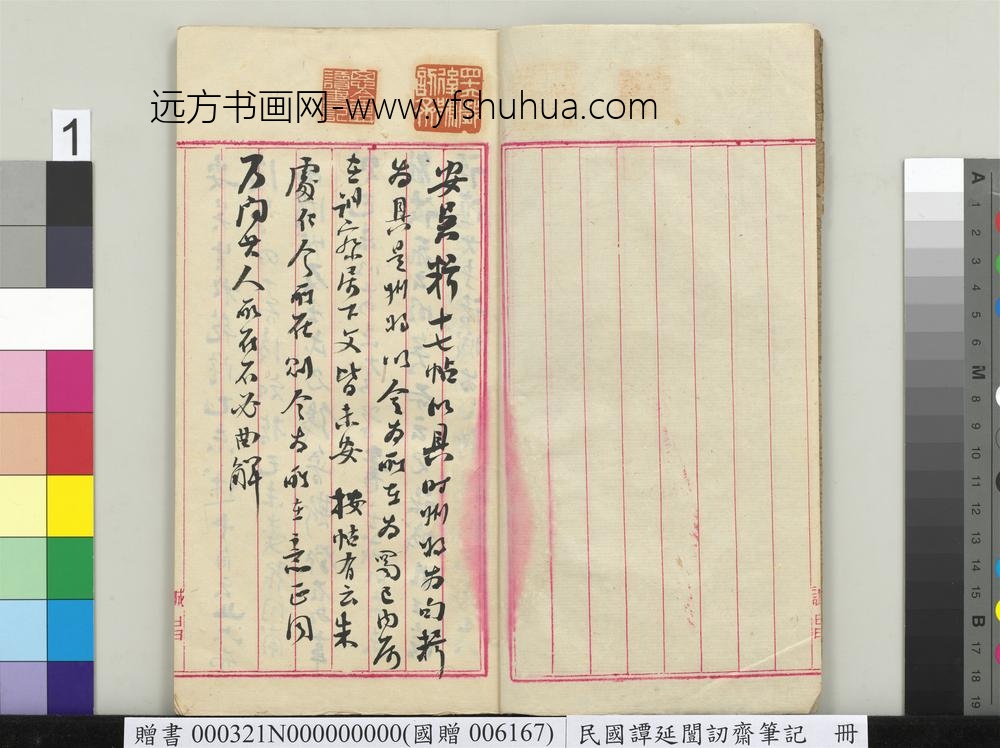 远方书画网-www.yfshuhua.com
安吳釋十七帖以具時州將為句釋
為具是州將以令為所在為蜀已內
在訓察居下文皆未安 按帖有云朱
處仁今所在則令為所在意正同
乃問其人所在不必曲解
1
A 1 2 3 4 5 6 M 8 9 10 11 12 13 14 15 B 17 18 19
贈書 000321N000000000(國贈 006167) 民國譚延闓訒齋筆記 冊